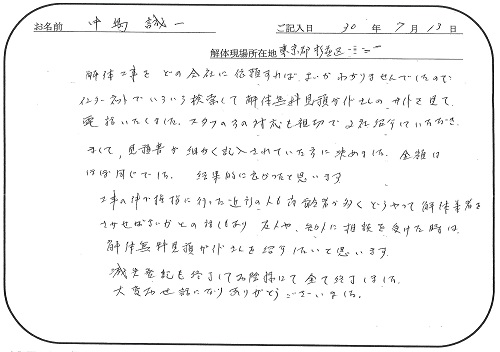 お名前 中島 誠一 ご記入日 30 年 7 月 13 日
解体現場所在地 東京都杉並区
解体工事をどの会社に依頼すればよいかわかりませんでしたので
インターネットでいろいろ検索して解体無料見積ガイドさんのサイトを見て
電話いたしました。スタッフの方の対応も親切で2社紹介していただき
まして、見積書が細かく記入されていた方に決めました。金額は
ほぼ同じでした。結果的に良かったと思います
工事の件で挨拶に行った近所の人も高齢者が多くどうやって解体業者を
さがせばよいかとの話もあり 友人や、知人に相談を受けた時は
解体無料見積ガイドさんを紹介したいと思います。
滅失登記も終了してお陰様にて全て終了しました。
大変お世話になりありがとうございました。